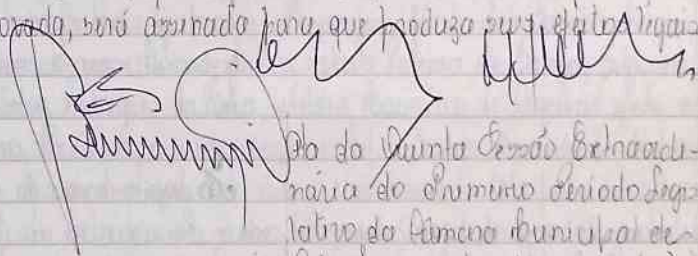 provada, será assinada para que produza seus efeitos legais
Ata da Quinta Sessão Extraordi-
nária do Primeiro Período Legis-
lativo da Câmara Municipal de